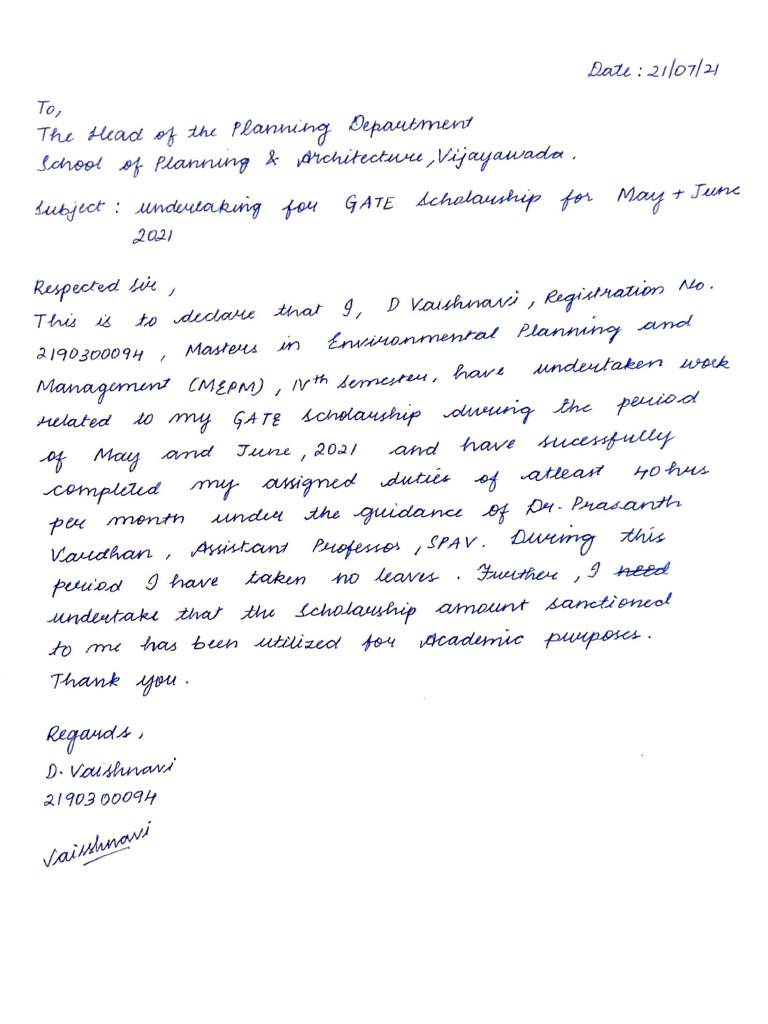 Date : 21/07/21
To,
The Head of the Planning Department
School of Planning & Architecture, Vijayawada.
Subject : undertaking for GATE Scholarship for May + June
2021
Respected Sir,
This is to declare that I, D Vaishnavi, Registration No.
2190300094, Masters in Environmental Planning and
Management (MEPM), IVth semester, have undertaken work
related to my GATE scholarship during the period
of May and June, 2021 and have sucessfully
completed my assigned duties of atleast 40 hrs
per month under the guidance of Dr. Prasanth
Vardhan, Assistant Professor, SPAV. During this
period I have taken no leaves. Further, I need
undertake that the scholarship amount sanctioned
to me has been utilized for Academic purposes.
Thank you.
Regards,
D. Vaishnavi
2190300094
Vaishnavi